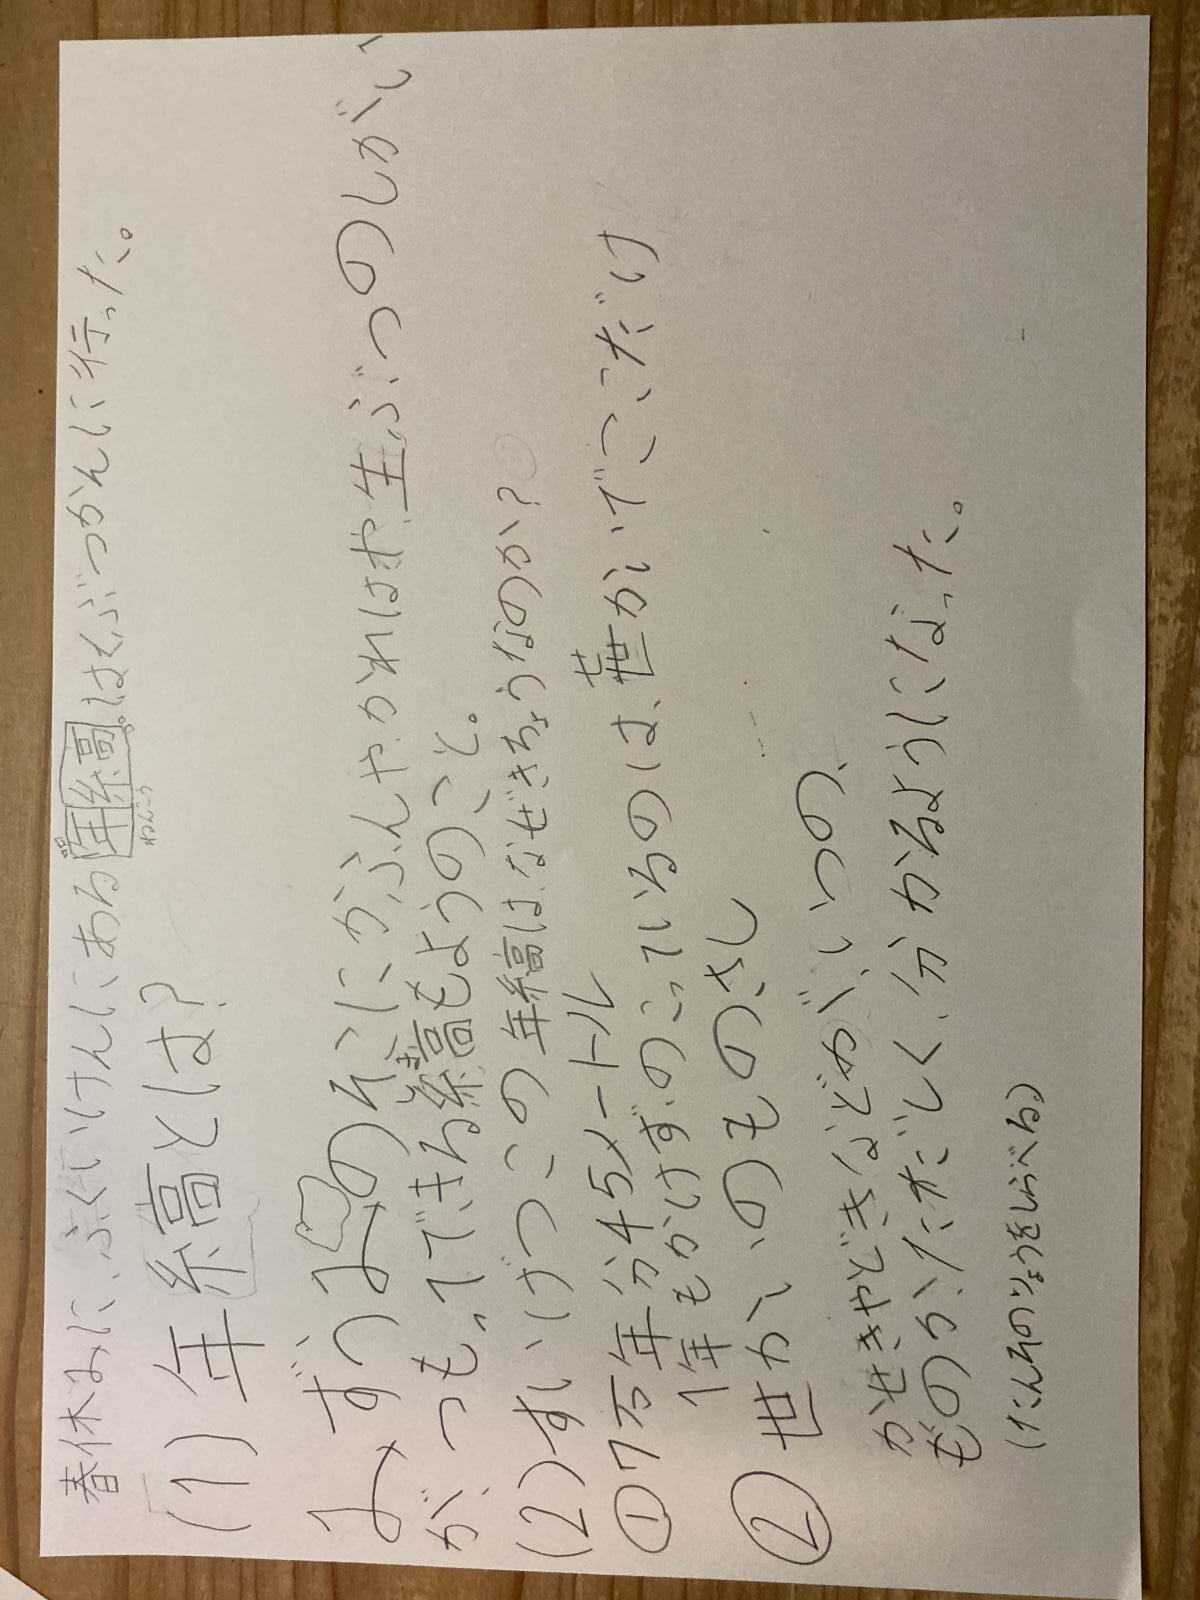 春休みに、ふくいけんにある年縞はくぶつかんに行った。
ねんこう
(1)年縞とは?
みずうみのそこにかふんやかれはや生ぶつのしがい
がつもってできる縞もようのこと。
(2)すいげつこの年縞はなぜきちょうなのか?
①7万年分45メートル
1年もかけずのこっているのは、世かいでここだけ
②世かいのものさし
かせきやどきなどが、いつの
ものかただしく分かるようになった。
(たんそのりょうをしらべる)